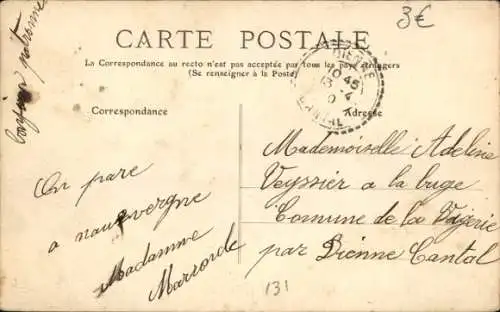 3€
CARTE POSTALE
La Correspondance au recto n'est pas acceptée par tous les pays étrangers
(Se renseigner à la Poste)
DIENNE
10 45
13 -4
CANTAL
Correspondance
Adresse
Mademoiselle Adeline
Veyssier a la buge
Comune de la Vigerie
par Dienne Cantal
On pare
a nauvergne
Madamme
Marronde
131